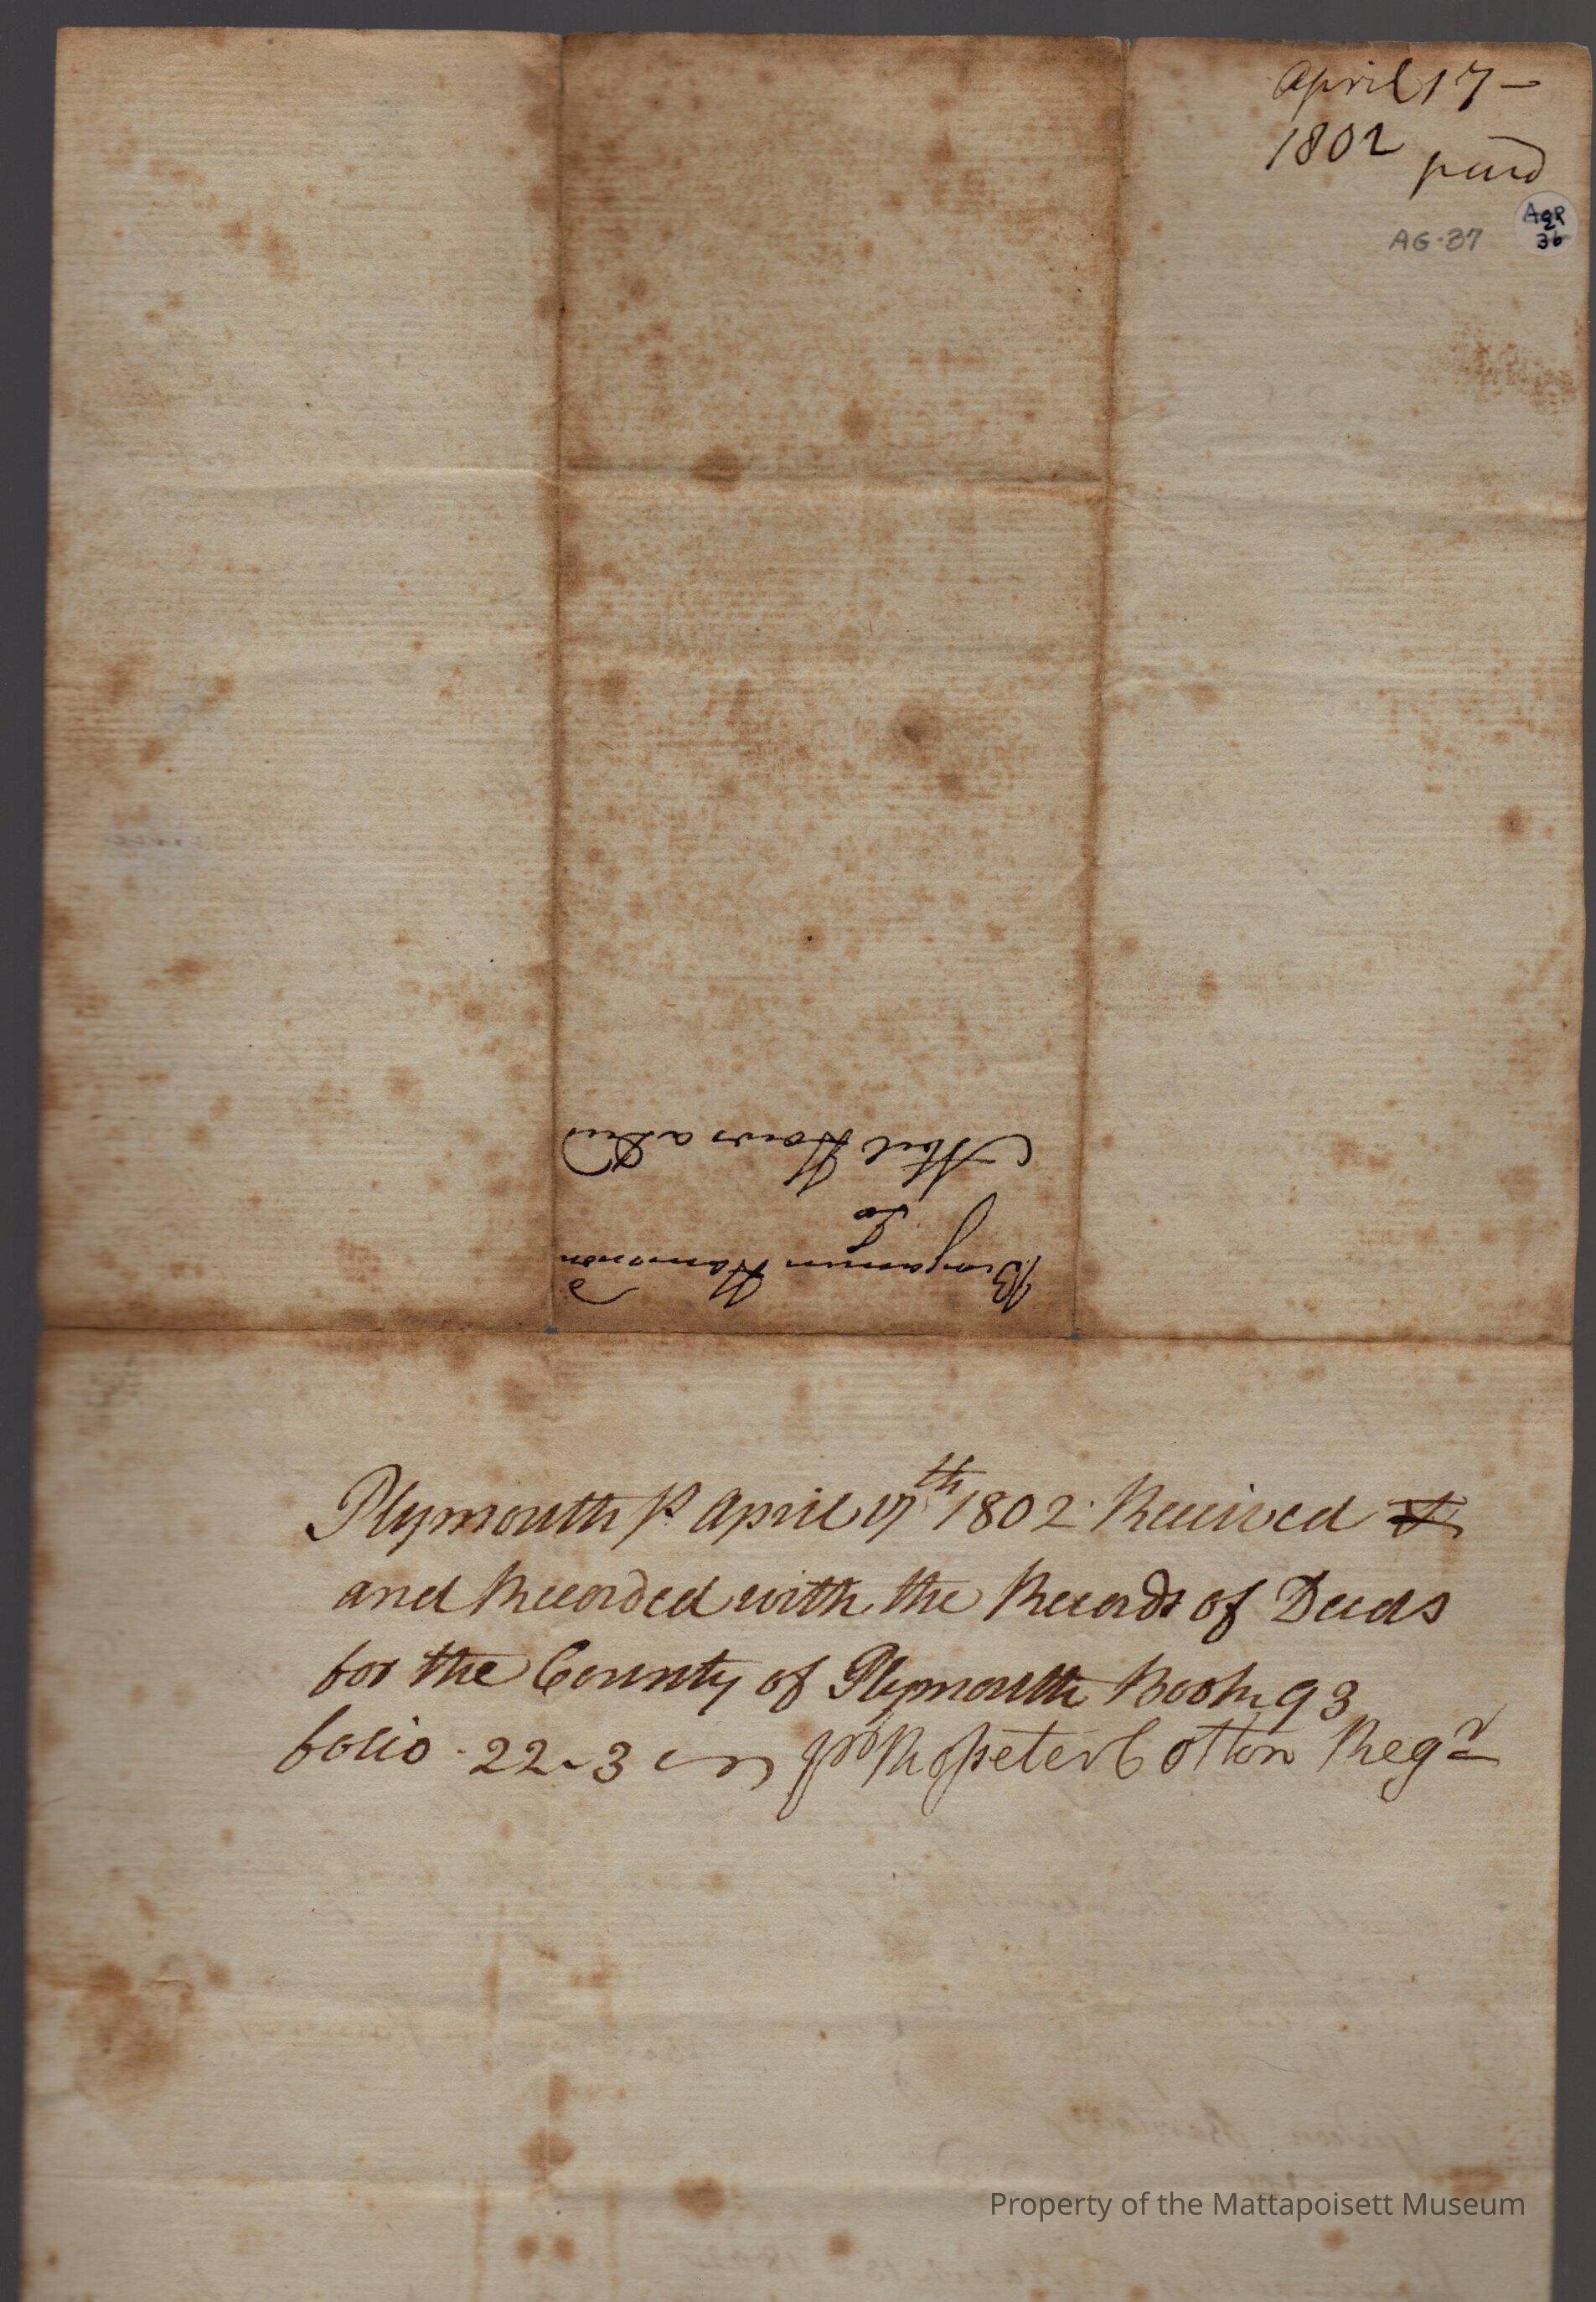 April 17 –
1802 paid
AG-37
AGR
2
36
Benjamin Hammond
To
Abiel Hows a Deed
Plymouth ss. April 17th 1802. Received
and Recorded with the Records of Deeds
for the County of Plymouth Book 93
folio 22-3 pr Rosseter Cotton Regr
Property of the Mattapoisett Museum